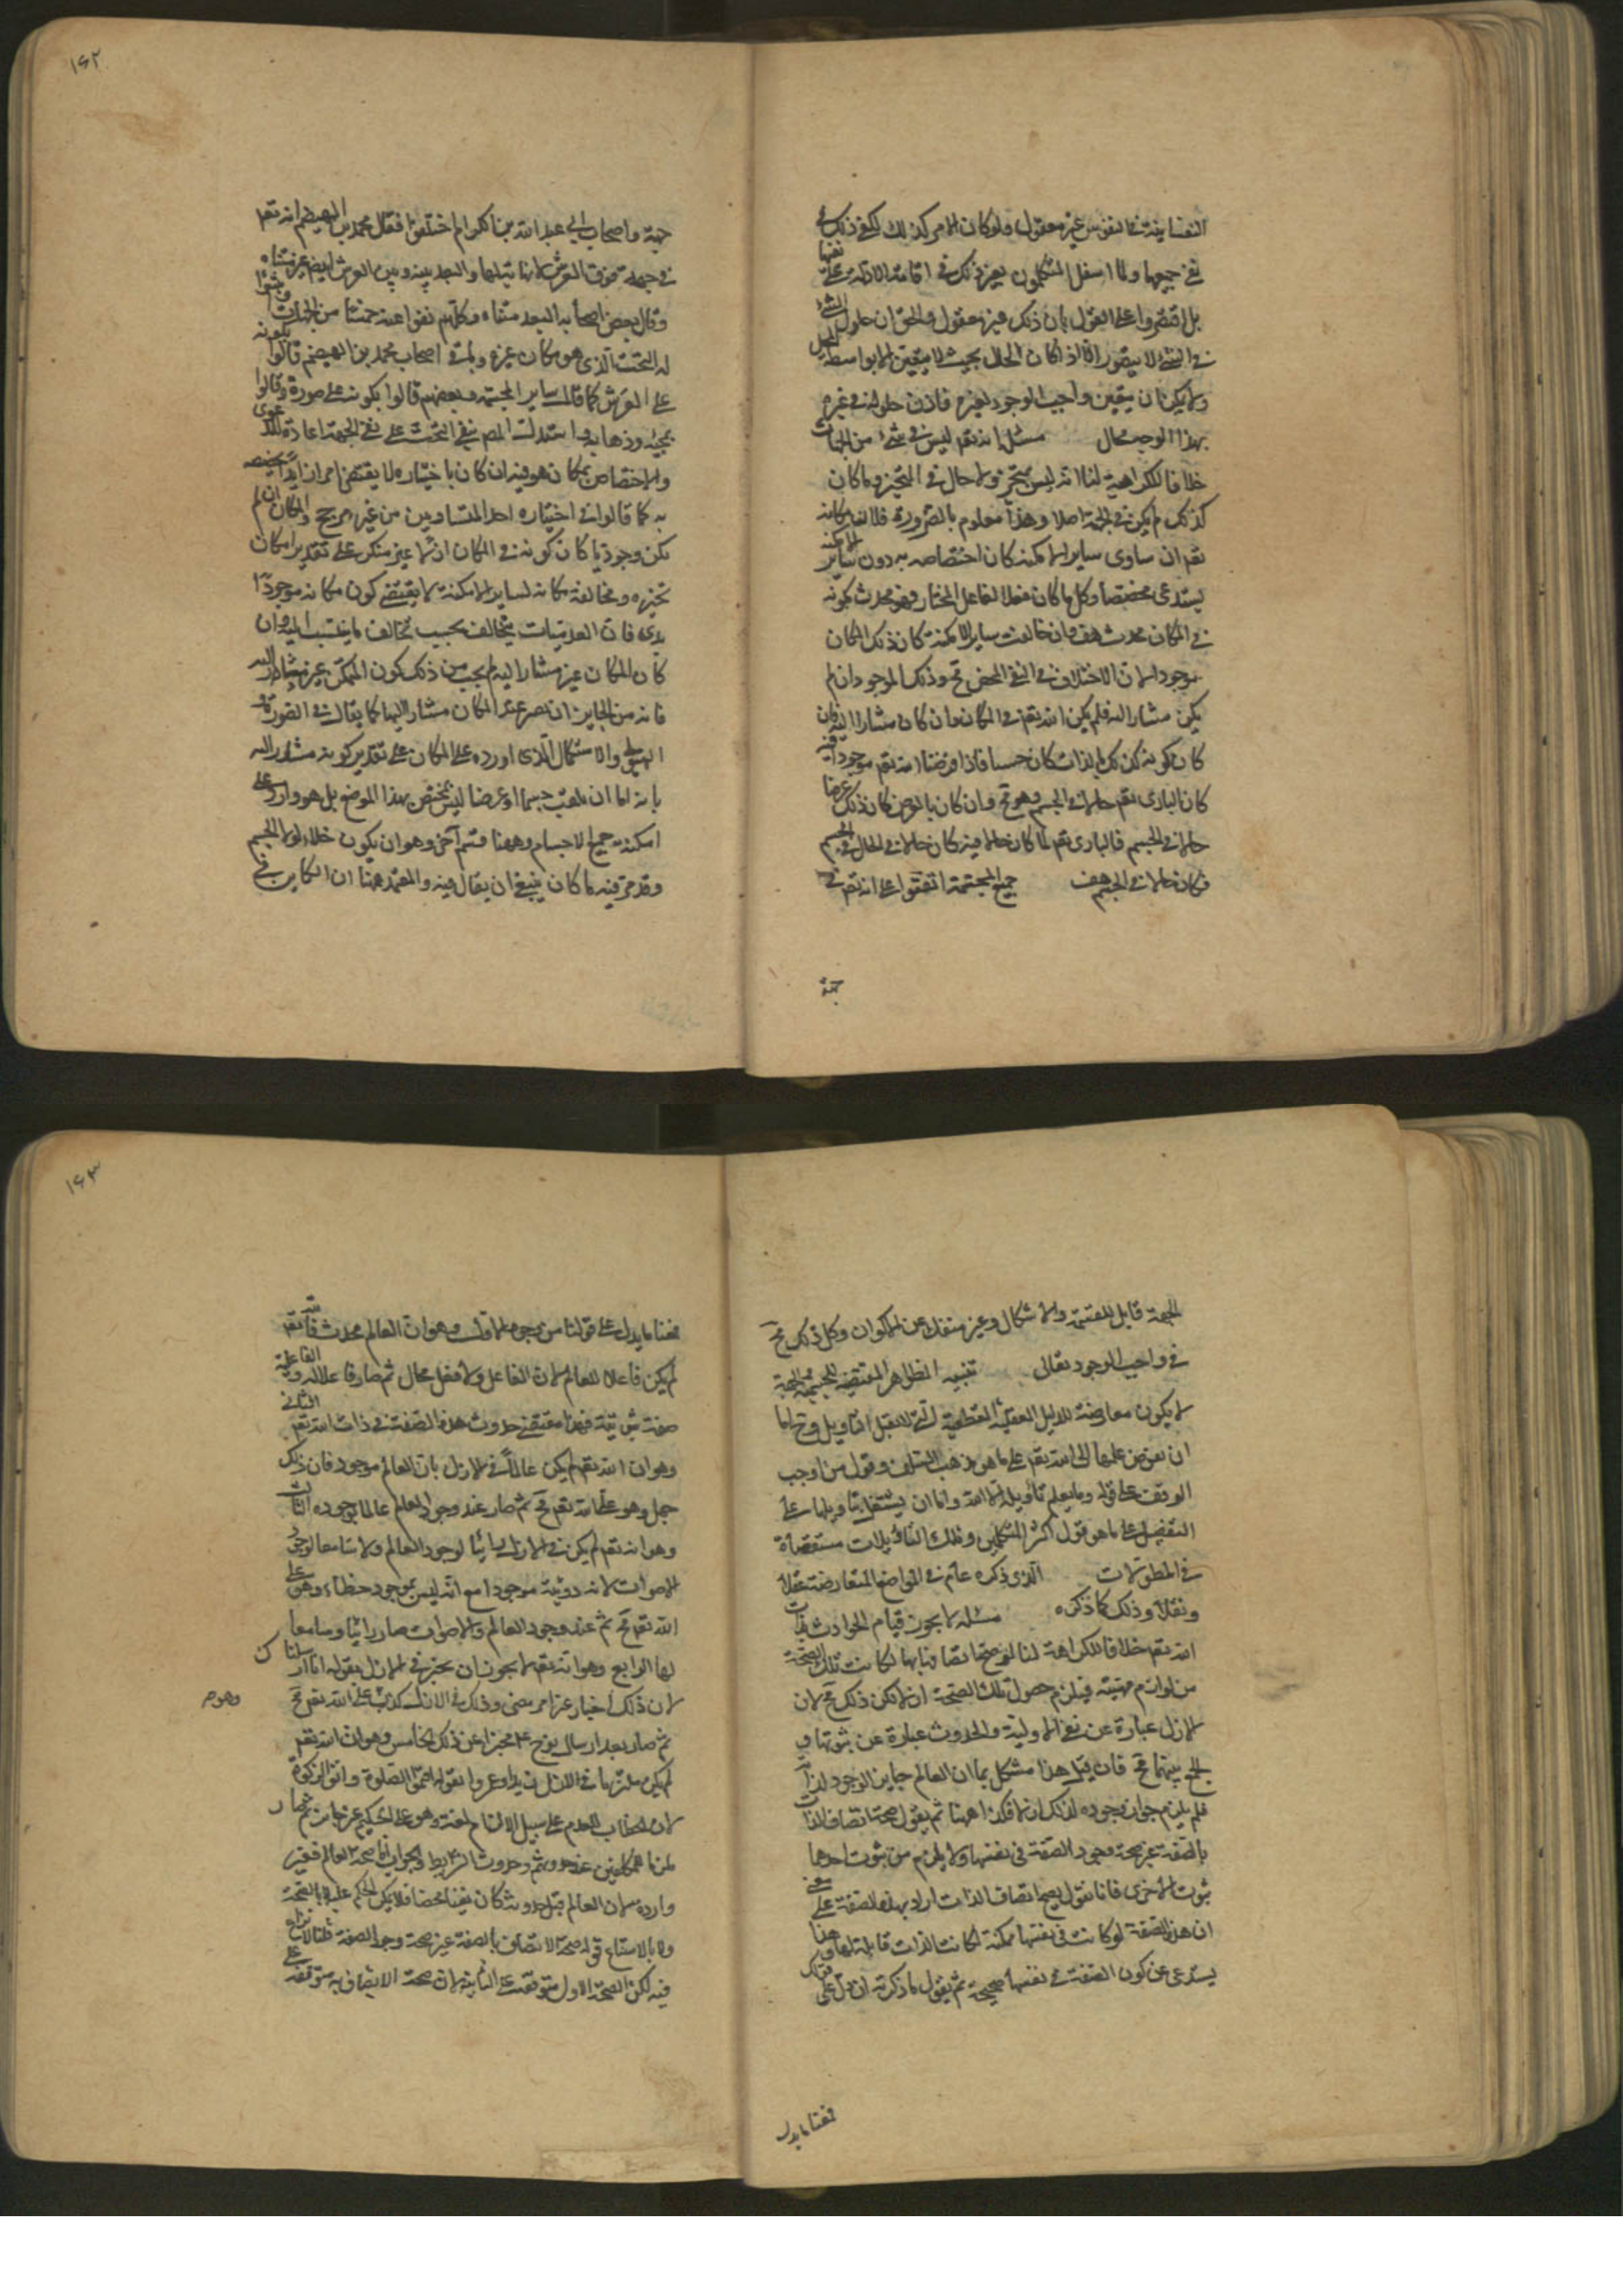 النفسانية في النفوس غير معقول ولو كان الامر كذلك لكفى ذلك في
نفي جميعها ولما اشتغل المتكلمون بعد ذلك في اقامة الادلة على نفيها
بل اقتصروا على القول بان ذلك غير معقول والحق ان حلول الشئ
في الشئ لا يتصور الا اذا كان الحال بحيث لا يتعين الا بواسطة المحل
ولا يمكن ان يتعين واجب الوجود بغيره فاذن حلوله في غيره
بهذا الوجه محال مسئلة انه تعم ليس في شئ من الجهات
خلافا للكرامية لنا انه ليس بمتحيز ولا حال في المتحيز وما كان
كذلك لم يكن في الجهة اصلا وهذا معلوم بالضرورة فلان مكانه
تعم ان ساوى ساير الامكنة كان اختصاصه به دون ساير الامكنة
يستدعى مخصصا وكل ما كان فعلا لفاعل المختار فهو محدث فكونه
في المكان محدث هف وان خالفت ساير الامكنة كان ذلك المكان
موجودا لان الاختلاف في النفي المحض مح وذلك الموجود ان لم
يكن مشارا اليه فلم يكن الله تعم في المكان وان كان مشارا اليه فان
كان كونه كذلك بالذات كان جسما فاذا فرضنا الله تعم موجودا فيه
كان البارى تعم حالا في الجسم وهو مح وان كان بالعرض كان ذلك عرضا
حالا في الجسم فالبارى تعم لما كان حالا فيه كان حالا في الحال في الجسم
فكان حالا في الجسم هف جميع المجسمة اتفقوا على انه تعم في
جهة
١٦٢
جهة واصحاب ابي عبد الله بن الكرام اختلفوا فقال محمد بن الهيصم انه تعم
في جهة فوق العرش لا نهاية لها والبعد بينه وبين العرش ايضا غير متناه
وقال بعض اصحابه البعد متناه وكلهم نفوا عنه خمسا من الجهات واثبتوا
له التحت الذى هو مكان غيره وباقي اصحاب محمد بن الهيصم قالوا بكونه
على العرش كما قال ساير المجسمة وبعضهم قالوا بكونه على صورة وقالوا
بمجيئه وذهابه واستدلت المص في التحت على نفي الجهة اعادة الدعوى
والاختصاص بمكان هو فيه ان كان باختياره لا يقتضى امرا زايدا يخصصه
به كما قالوا في اختياره احد المتساويين من غير مرجح والمكان ان لم
يكن وجوديا كان كونه في المكان ازليا غير منكر على تقدير امكان
تحيزه ومخالفة مكانه لساير الامكنة لا يقتضى كون مكانه موجودا
بدى فان العدميات يتخالف بحسب تخالف ما ينتسب اليه وان
كان المكان غير مشار اليه لم يجب من ذلك كون المتمكن غير مشار اليه
فانه من الجايز ان يصير غير المكان مشارا اليها كما يقال في الصورة و
الهيولى والاشكال الذى اورده على المكان على تقدير كونه مشارا اليه
بانه اما ان يكون جسما او عرضا ليس يختص بهذا الموضع بل هو وارد على
امكنة جميع الاجسام وههنا قسم آخر وهو ان يكون خلاء لولا الجسم
وقد مر فيه ما كان ينبغي ان يقال فيه والمعتمد ههنا ان الكاين في
الجهة قابل للقسمة والاشكال وغير منفك عن الاكوان وكل ذلك مح
في واجب الوجود تعالى تنبيه الظواهر المقتضية للجسمية والجهة
لا يكون معارضة للدليل العقلية القطعية التى لا تقبل التاويل وح اما
ان نفوض علمها الى الله تعم على ما هو مذهب السلف وقول من اوجب
الوقف على قوله وما يعلم تاويله الا الله واما ان يشتغل بتاويلها على
التفصيل على ما هو قول اكثر المتكلمين وتلك التاويلات مستقصاة
في المطولات الذى ذكره عام في المواضع المتعارضة عقلا
ونقلا وذلك كما ذكره مسئلة لا يجوز قيام الحوادث بذات
الله تعم خلافا للكرامية لنا لو صح اتصافه بها لكانت تلك الصحة
من لوازم مهيته فيلزم حصول تلك الصحة ازلا لكن ذلك مح لان
الازل عبارة عن نفي الاولية والحدوث عبارة عن ثبوتها و
الجمع بينهما مح فان قيل هذا مشكل بما ان العالم جايز الوجود لذاته
فلم يلزم جواز وجوده لذلك ازلا فكذا ههنا ثم يقول صحة اتصاف الذات
بالصفة غير صحة وجود الصفة في نفسها ولا يلزم من ثبوت احدها
ثبوت الاخرى فانا نقول يصح اتصاف الذات ازلا بهذه الصفة معنى على
ان هذه الصفة لو كانت في نفسها ممكنة لكانت الذات قابلة لها وهذا
يستدعى عن كون الصفة في نفسها صحيحة ثم يقول ما ذكرته ان دل على
فعنا ما يدل
١٦٣
فعنا ما يدل على قولنا من وجوه الاول وهو ان العالم محدث فالله تعم
لم يكن فاعلا للعالم لان الفاعل ولا فعل محال ثم صار فاعلا له والفاعلية
صفة ثبوتية فهذا يقتضى حدوث هذه الصفة في ذات الله تعم الثاني
وهو ان الله تعم لم يكن عالما في الازل بان العالم موجود فان ذلك
جهل وهو على الله تعم مح ثم صار عند وجود العالم عالما بوجوده الثالث
وهو انه تعم لم يكن في الازل رائيا لوجود العالم ولا سامعا لوجود
الاصوات لانه رؤية موجودا مع انه ليس بموجود خطاء وهو على
الله تعم مح ثم عند وجود العالم والاصوات صار رائيا وسامعا
لها الرابع وهو انه تعم لا يجوز ان يخبر في الازل بقوله انا ارسلنا
لان ذلك اخبار عن امر مضى وذلك في الازل كذب على الله تعم مح
ثم صار بعد ارسال نوح ع مخبرا عن ذلك الخامس وهو ان الله تعم
لم يكن ملزما في الازل زيدا وعمروا بقوله اقيموا الصلوة واتوا الزكوة
لان خطاب المعدم على سبيل الالزام سفه وهو على الحكيم غير جائز ثم صار
ملزما للمكلفين عند وجودهم وحدوث الشرايط والجواب اما صحة العالم فغير
واردة لان العالم قبل حدوثه كان نفيا محضا فلا يمكن الحكم عليه لا بالصحة
ولا بالامتناع قوله صحة الاتصاف بالصفة غير صحة وجود الصفة قلنا لا نزاع
فيه لكن الصحة الاولى متوقفة على الثانية لان صحة الاتصاف به متوقفة على